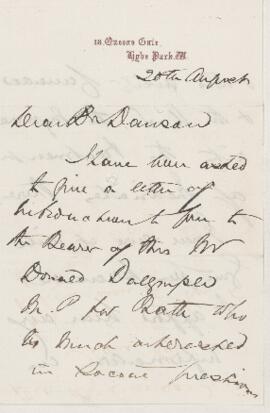 18. Queens Gate.
Hyde Park. W.
20th August
Dear Dr Dawson
I have been asked
to give a letter of
introduction to you to
the Bearer of this Mr
Donald Dalrymple
M. P for Bath who
is much interested
in